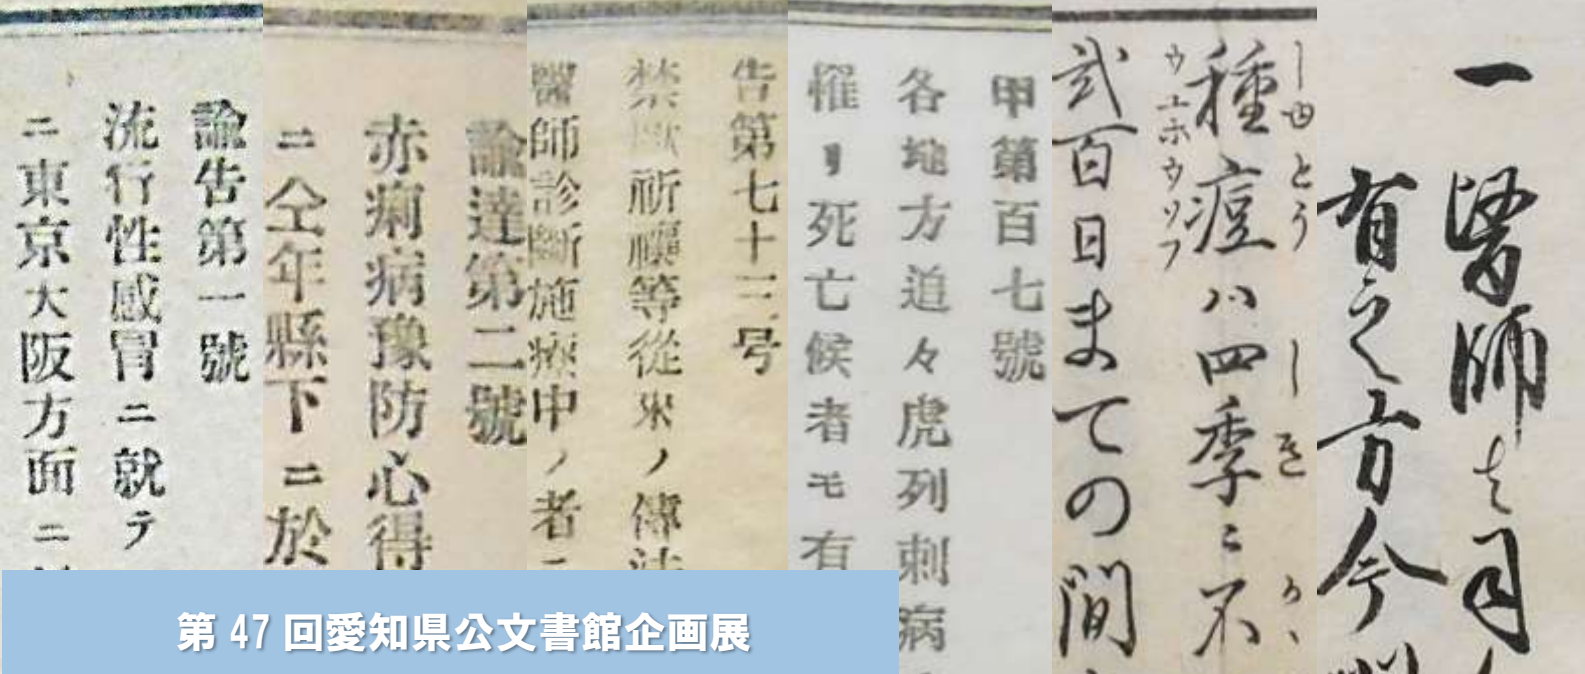 一醫師司
有之方今
しゆとう しき かゝ
種痘ハ四季ニ不
ウエホウソフ
弐百日まての間
甲第百七號
各地方追々虎列刺病
罹リ死亡候者モ有
告第七十三号
禁厭祈禳等從來ノ傳法
醫師診斷施療中ノ者ニ
諭達第二號
赤痢病豫防心得
ニ仝年縣下ニ於
諭告第一號
流行性感冒ニ就テ
ニ東京大阪方面ニ
第 47 回愛知県公文書館企画展